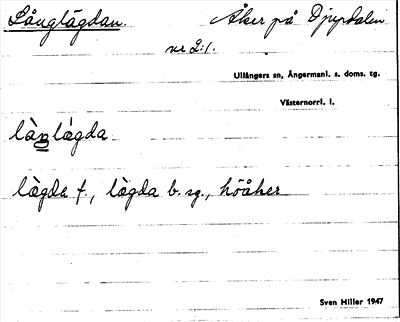 Långlägdan. Åker på Djupdalen
nr 2:1.
Ullångers sn, Ångermanl. s. doms. tg.
Västernorrl. l.
làŋlǽgda
lægda f., lægda b. sg., höåker
Sven Hiller 1947